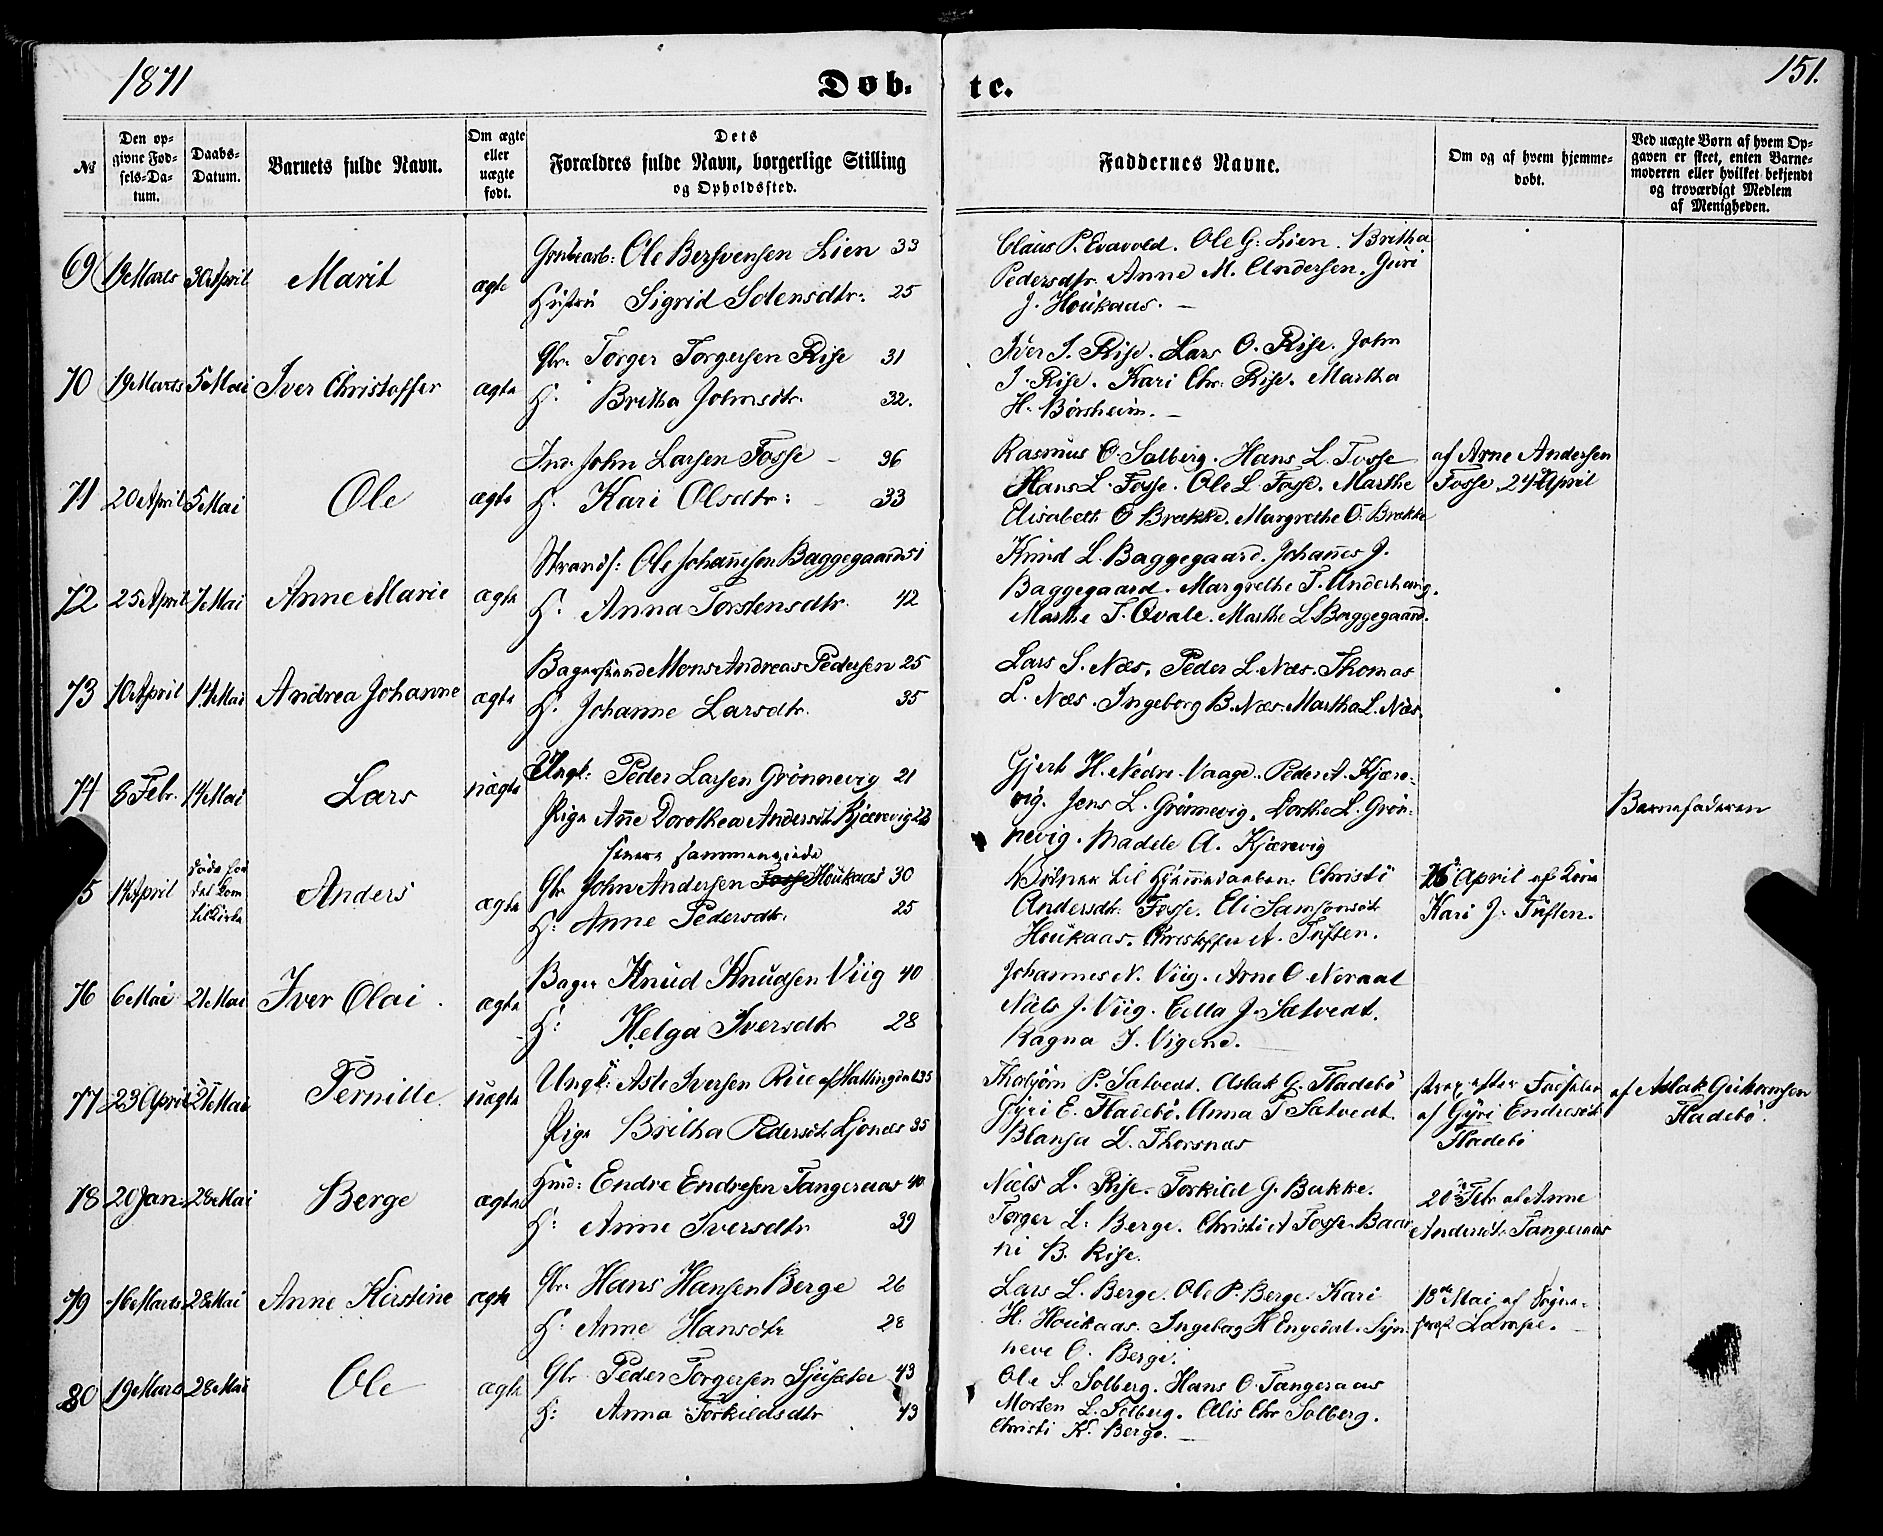 1871
151.
Døb-
te.
№
Den op-
givne Fød-
sels-Da-
tum.
Daabs-
Datum.
Barnets fulde Navn.
Om ægte
eller
uægte
født.
Dets
Forældres fulde Navn, borgerlige Stilling
og Opholdssted.
Faddernes Navne.
Om og af hvem hjemme-
døbt.
Ved uægte Børn af hvem Op-
gaven er skeet, enten Barne-
moderen eller hvilket bekjendt
og troværdigt Medlem
af Menigheden.
69 19 Marts 30 April Marit ægte
Ole Bersvensen Lien 33
Hustru Sigrid Sotensdtr: 25
Claus P. Evavold. Ole G. Lien. Britha
Pedersdtr. Anne M. Andersen. Guri
J. Houkaas. —
70 19 Marts 5 Mai Iver Christoffer ægte
Gbr. Torger Torgersen Rise 31
H. Britha Johnsdtr. 32.
Iver I. Rise. Lars O. Rise. John
I. Rise. Kari Chr. Rise. Martha
H. Børsheim. —
71 20 April 5 Mai Ole ægte
Ind. John Larsen Fosse — 36
H. Kari Olsdtr: — 33
Rasmus O. Solberg. Hans L. Fosse
Hans L. Fosse. Ole L. Fosse. Marthe
Elisabeth O Brække. Margrethe O. Brække
af Arne Andersen
Fosse 24 April
72 25 April 7 Mai Anne Marie ægte
Strands: Ole Johannesen Baggegaard 51
H. Anna Torstensdtr. 42
Knud L. Baggegaard. Johannes J.
Baggegaard. Margrethe T. Underhaug.
Marthe T. Qvale. Marthe L. Baggegaard.
73 10 April 14 Mai Andrea Johanne ægte
Bagersvend Mons Andreas Pedersen 25
H. Johanne Larsdtr. 35
Lars S. Næs. Peder L. Næs. Thomas
L. Næs. Ingeborg B. Næs. Martha L. Næs.
74 8 Febr. 14 Mai Lars uægte
Ungk: Peder Larsen Grønnevig 21
Pige Anne Dorothea Andersdt. Kjærevig 23
Gjert H. Nedre-Vaage. Peder A. Kjære-
vig. Jens L. Grønnevig. Dorthe L. Grøn-
nevig. Madele A. Kjærevig
Barnefaderen
5 14 April døde før
det kom
til Kirke
Anders ægte
senere sammenviede
Gbr John Andersen Fosse Houkaas 30
H: Anne Pedersdtr. 25
Vidner til Hjemmedaaben: Christi
Andersdtr. Fosse. Eli Samsonsdt
Houkaas. Christoffer A. Tuften.
26 April af Kone
Kari J. Tuften.
76 6 Mai 21 Mai Iver Olai. ægte
Bager Knud Knudsen Viig 40
H: Helga Iversdtr 28
Johannes N. Viig. Arne O. Neraal
Niels J. Viig. Cella J. Sætvedt.
Ragna J. Vigene.
77 23 April 21 Mai Pernille. uægte
Ungk: Asle Iversen Rue af Hallingdal 35
Pige Britha Pedersdt. Ljones 35
Thorbjørn P. Sætvedt. Aslak G. Fladebø
Gyri E. Fladebø. Anna T Sætvedt.
Blansa L. Thorsnæs
strax efter Fødselen
af Gyri Endresdt
Fladebø
af Aslak Guttormsen
Fladebø.
78 20 Jan. 28 Mai Berge ægte
Husm: Endre Endresen Tangeraas 40
H: Anne Iversdtr 39
Niels L. Rise. Torkild G. Bakke.
Torger L. Berge. Christi A Fosse. Baar
ni B. Rise.
20 Feb. af Anne
Andersdt. Tangeraas
79 16 Marts 28 Mai Anne Kirstine ægte
Gbr. Hans Hansen Berge 26
H: Anne Hansdtr 28
Lars L. Berge. Ole P. Berge. Kari
H. Houkaas. Ingeborg H Engedal. Syn-
neve O. Berge.
18de Mai af Sogne-
præst Lampe.
80 19 Marts 28 Mai Ole ægte
Gbr. Peder Torgersen Sjusæter 43
H: Anna Torkildsdtr 43
Ole S. Solberg. Hans O. Tangeraas
Morten L. Solberg. Alis Chr Solberg.
Christi K. Berge. —